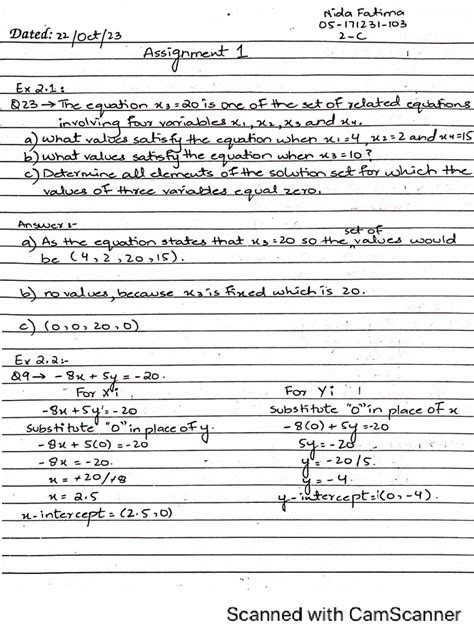 Nida Fatima
05-171231-103
Dated: 22/Oct/23
2-C
Assignment 1
Ex 2.1:
Q23 → The equation x₃=20 is one of the set of related equations
involving four variables x₁, x₂, x₃ and x₄.
a) what values satisfy the equation when x₁=4, x₂=2 and x₄=15
b) what values satisfy the equation when x₃=10?
c) Determine all elements of the solution set for which the
values of three variables equal zero.
Answer:-
a) As the equation states that x₃=20 so the set of values would
be (4,2,20,15).
b) no values, because x₃ is fixed which is 20.
c) (0,0,20,0)
Ex 2.2:-
Q9 → -8x + 5y = -20.
For X
-8x + 5y = -20
Substitute "0" in place of y.
-8x + 5(0) = -20
-8x = -20.
x = +20/+8
x = 2.5
x-intercept = (2.5,0)
For Y
Substitute "0" in place of x
-8(0) + 5y = -20
5y = -20
y = -20/5.
y = -4.
y-intercept: (0,-4).
Scanned with CamScanner